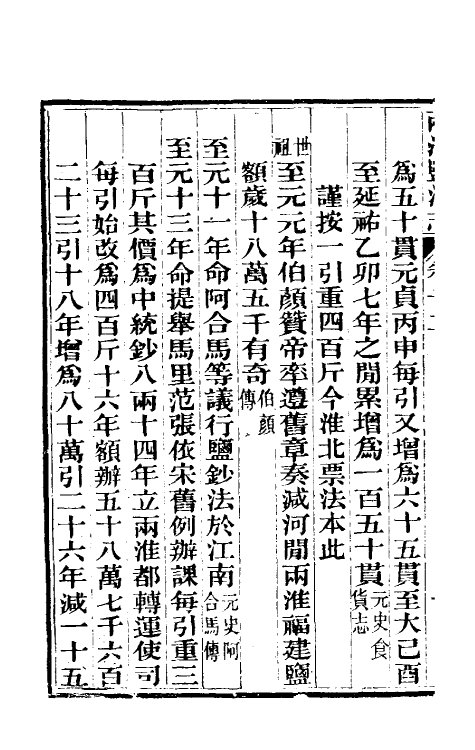 爲五十貫元貞丙申每引又增爲六十五貫至大己酉
至延祐乙卯七年之閒累增爲一百五十貫元史食貨志
謹按一引重四百斤今淮北票法本此
世祖至元元年伯顏贊帝率遵舊章奏減河閒兩淮福建鹽
額歲十八萬五千有奇伯顏傳
至元十一年命阿合馬等議行鹽鈔法於江南元史阿合馬傳
至元十三年命提舉馬里范張依宋舊例辦課每引重三
百斤其價爲中統鈔八兩十四年立兩淮都轉運使司
每引始改爲四百斤十六年額辦五十八萬七千六百
二十三引十八年增爲八十萬引二十六年減一十五